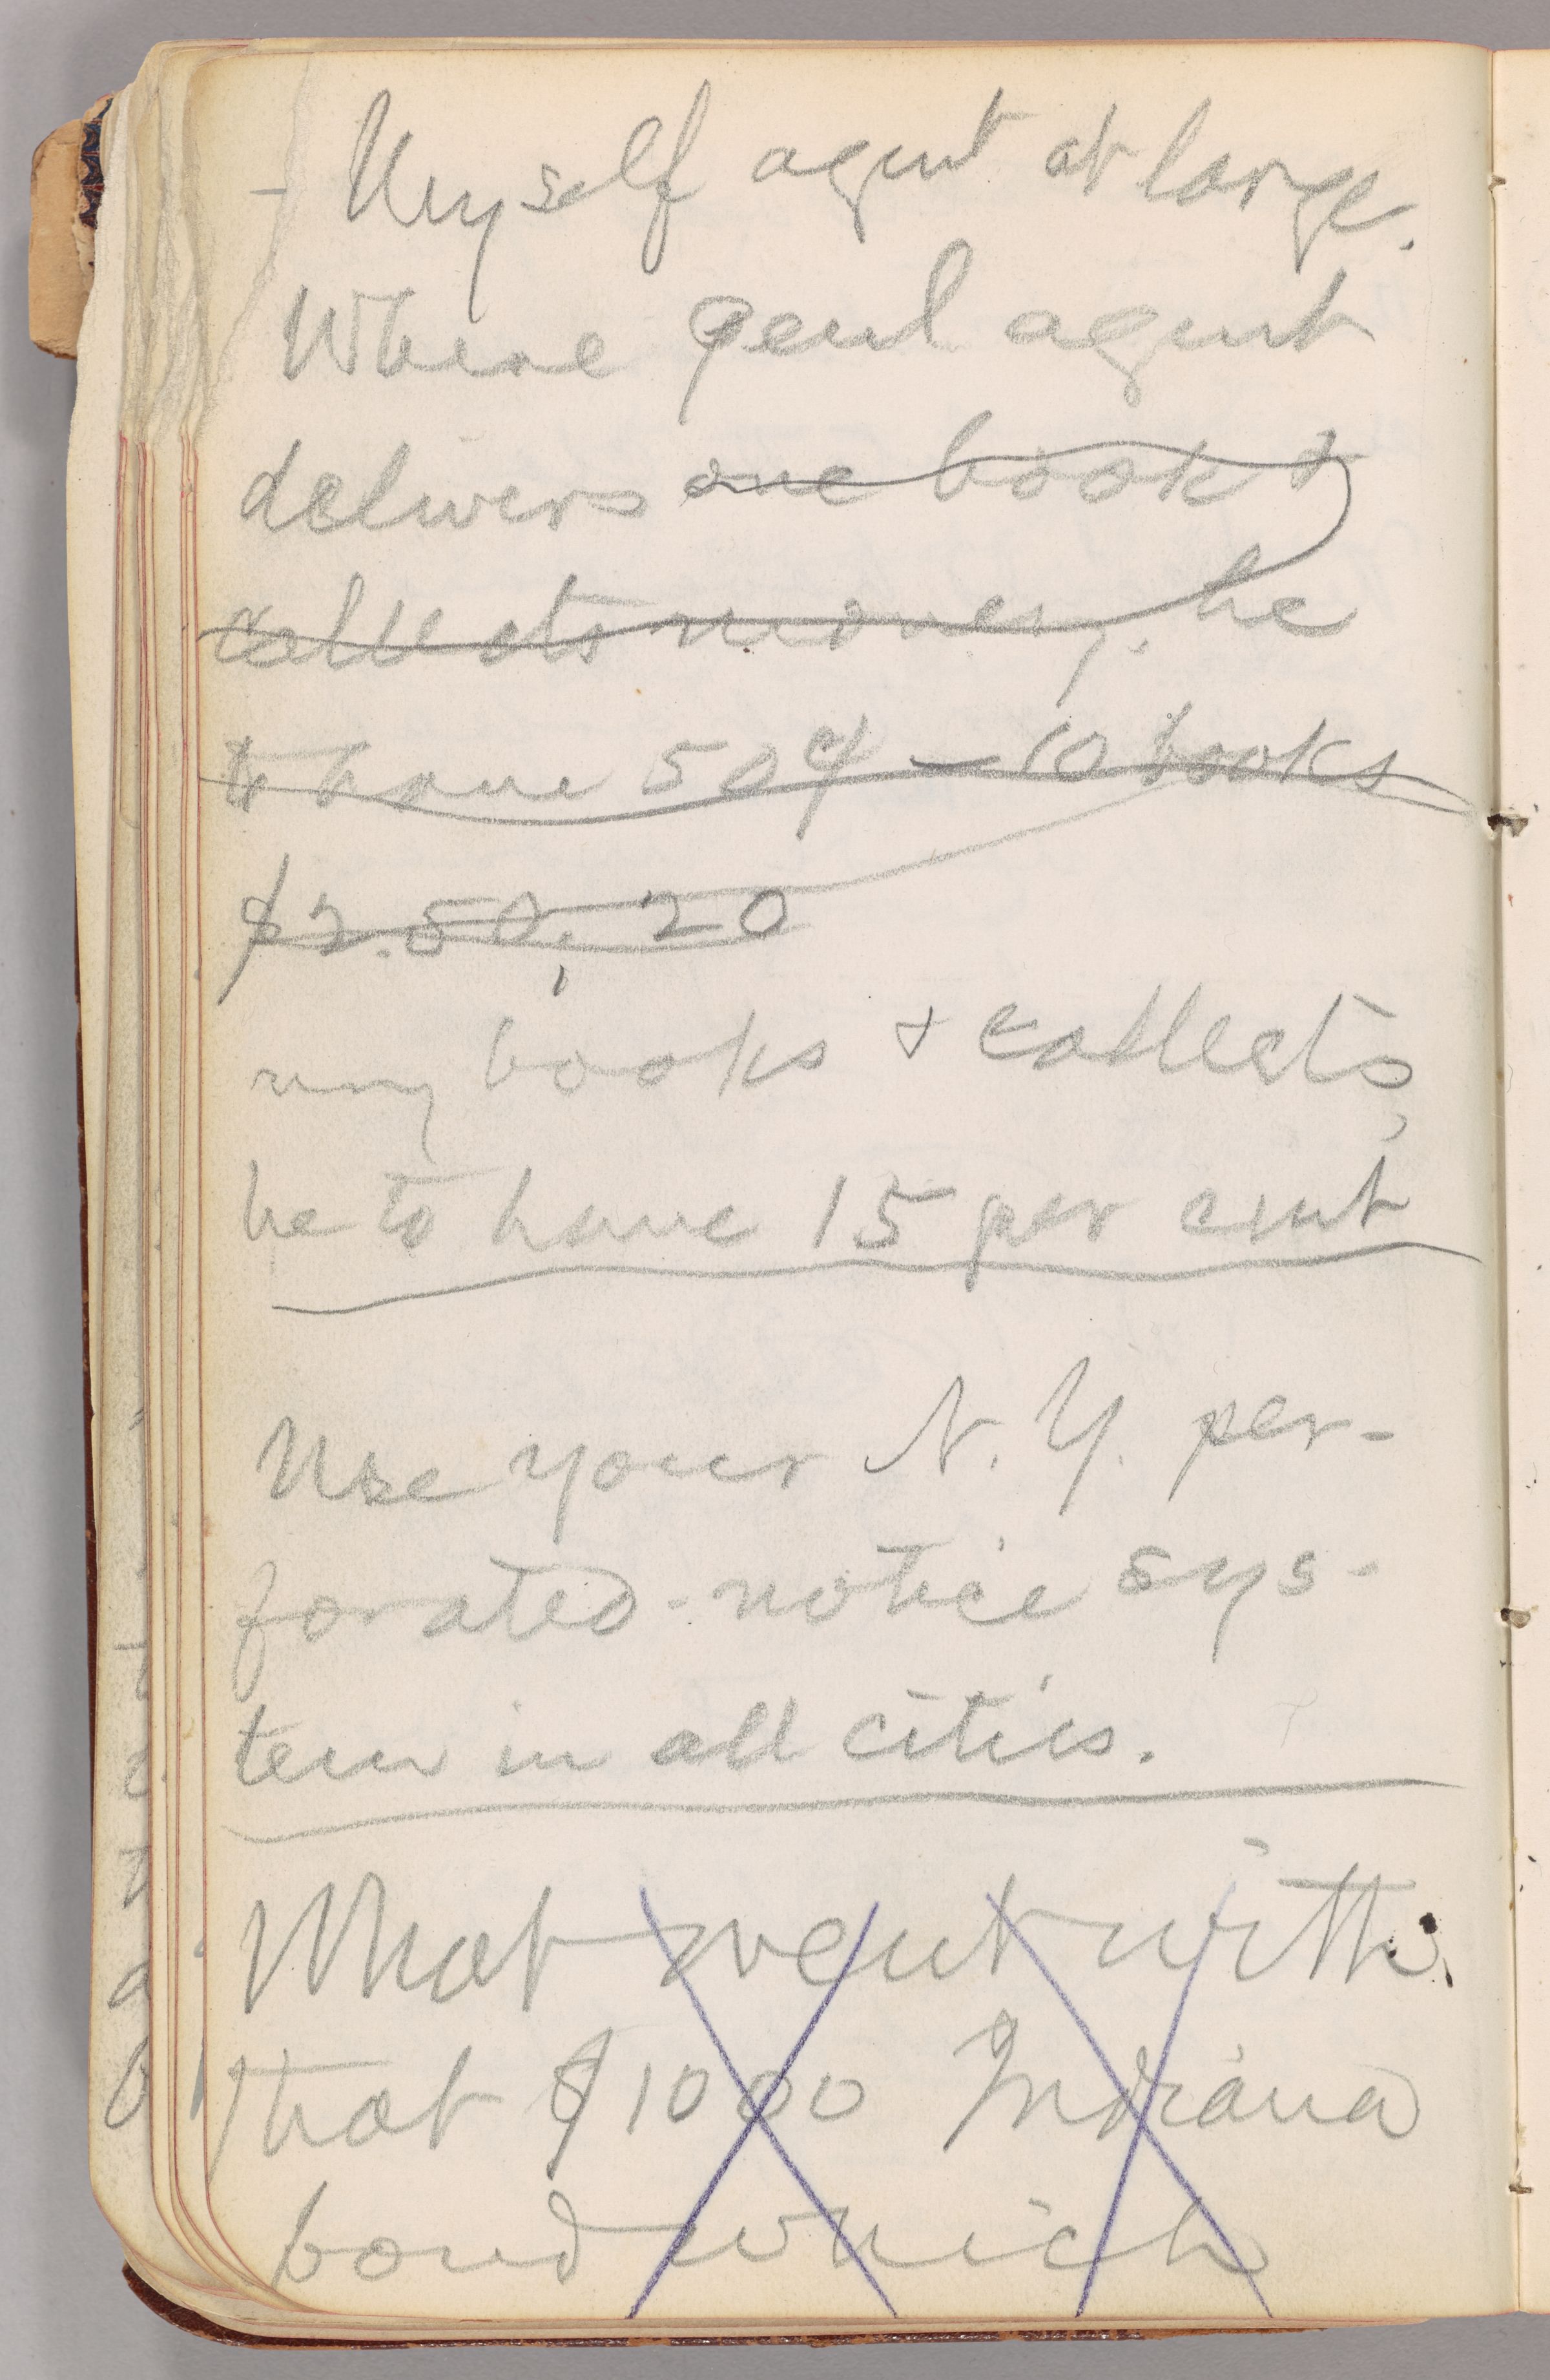 - Myself agent at large.
Where genl agent
delivers one book &
collects money, he
to have 50¢ — 10 books
$2.50, 20
my books & collects,
he to have 15 per cent
Use your N. Y. per-
forated-notice sys-
tem in all cities.
What went with
that $1000 Indiana
bond which